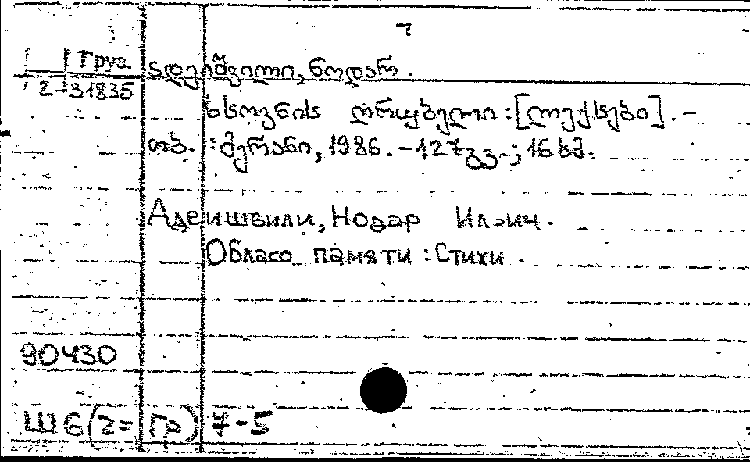 7
Груз
2-31835
ადეიშვილი, ნოდარ.
ხსოვნის ღრუბელი: [ლექსები]. –
თბ. : მერანი, 1986. – 127 გვ.; 16 სმ.
Адеишвили, Нодар Ильич.
памяти : Стихи.
90430
Ш6(2=Гр)7-5